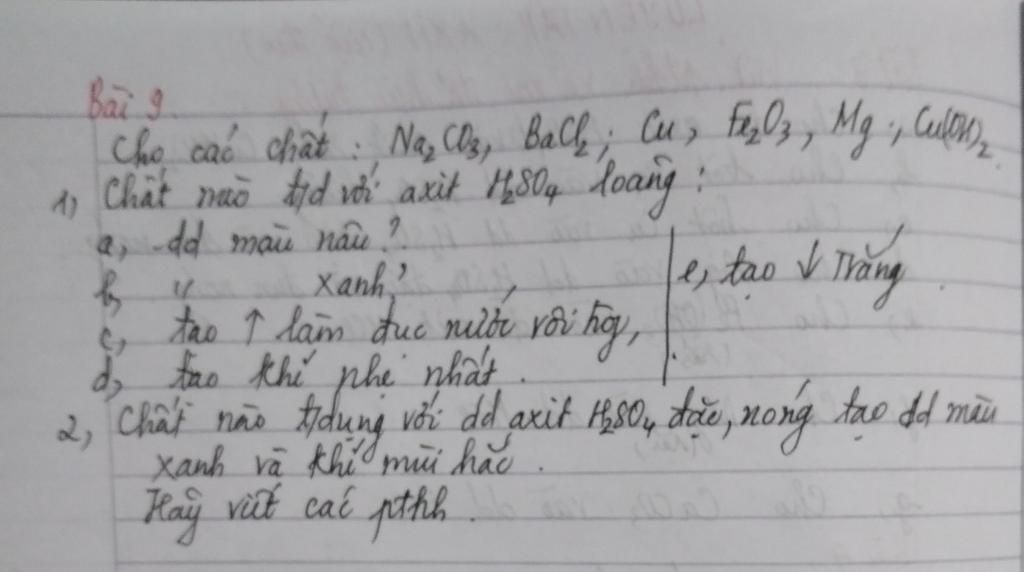 Bài 9.
Cho các chất: Na2CO3, BaCl2; Cu, Fe2O3, Mg; Cu(OH)2
1, Chất nào t/d với axit H2SO4 loãng:
a, dd màu nâu?
b, " xanh?
c, tạo ↑ làm đục nước vôi tr,
d, tạo khí nhẹ nhất.
e, tạo ↓ Trắng.
2, Chất nào t/dụng với dd axit H2SO4 đặc, nóng tạo dd màu
xanh và khí mùi hắc.
Hãy viết các pthh.